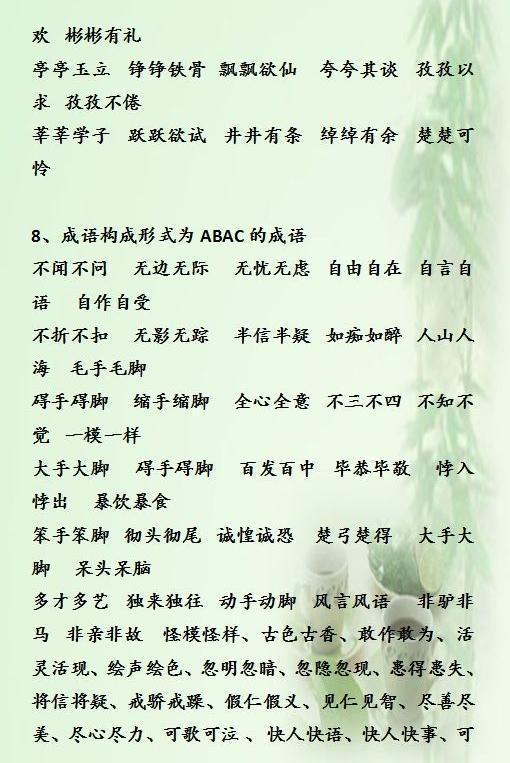 欢 彬彬有礼
亭亭玉立 铮铮铁骨 飘飘欲仙 夸夸其谈 孜孜以
求 孜孜不倦
莘莘学子 跃跃欲试 井井有条 绰绰有余 楚楚可
怜
8、成语构成形式为 ABAC 的成语
不闻不问 无边无际 无忧无虑 自由自在 自言自
语 自作自受
不折不扣 无影无踪 半信半疑 如痴如醉 人山人
海 毛手毛脚
碍手碍脚 缩手缩脚 全心全意 不三不四 不知不
觉 一模一样
大手大脚 碍手碍脚 百发百中 毕恭毕敬 悖入
悖出 暴饮暴食
笨手笨脚 彻头彻尾 诚惶诚恐 楚弓楚得 大手大
脚 呆头呆脑
多才多艺 独来独往 动手动脚 风言风语 非驴非
马 非亲非故 怪模怪样、古色古香、敢作敢为、活
灵活现、绘声绘色、忽明忽暗、忽隐忽现、患得患失、
将信将疑、戒骄戒躁、假仁假义、见仁见智、尽善尽
美、尽心尽力、可歌可泣 、 快人快语、快人快事、可